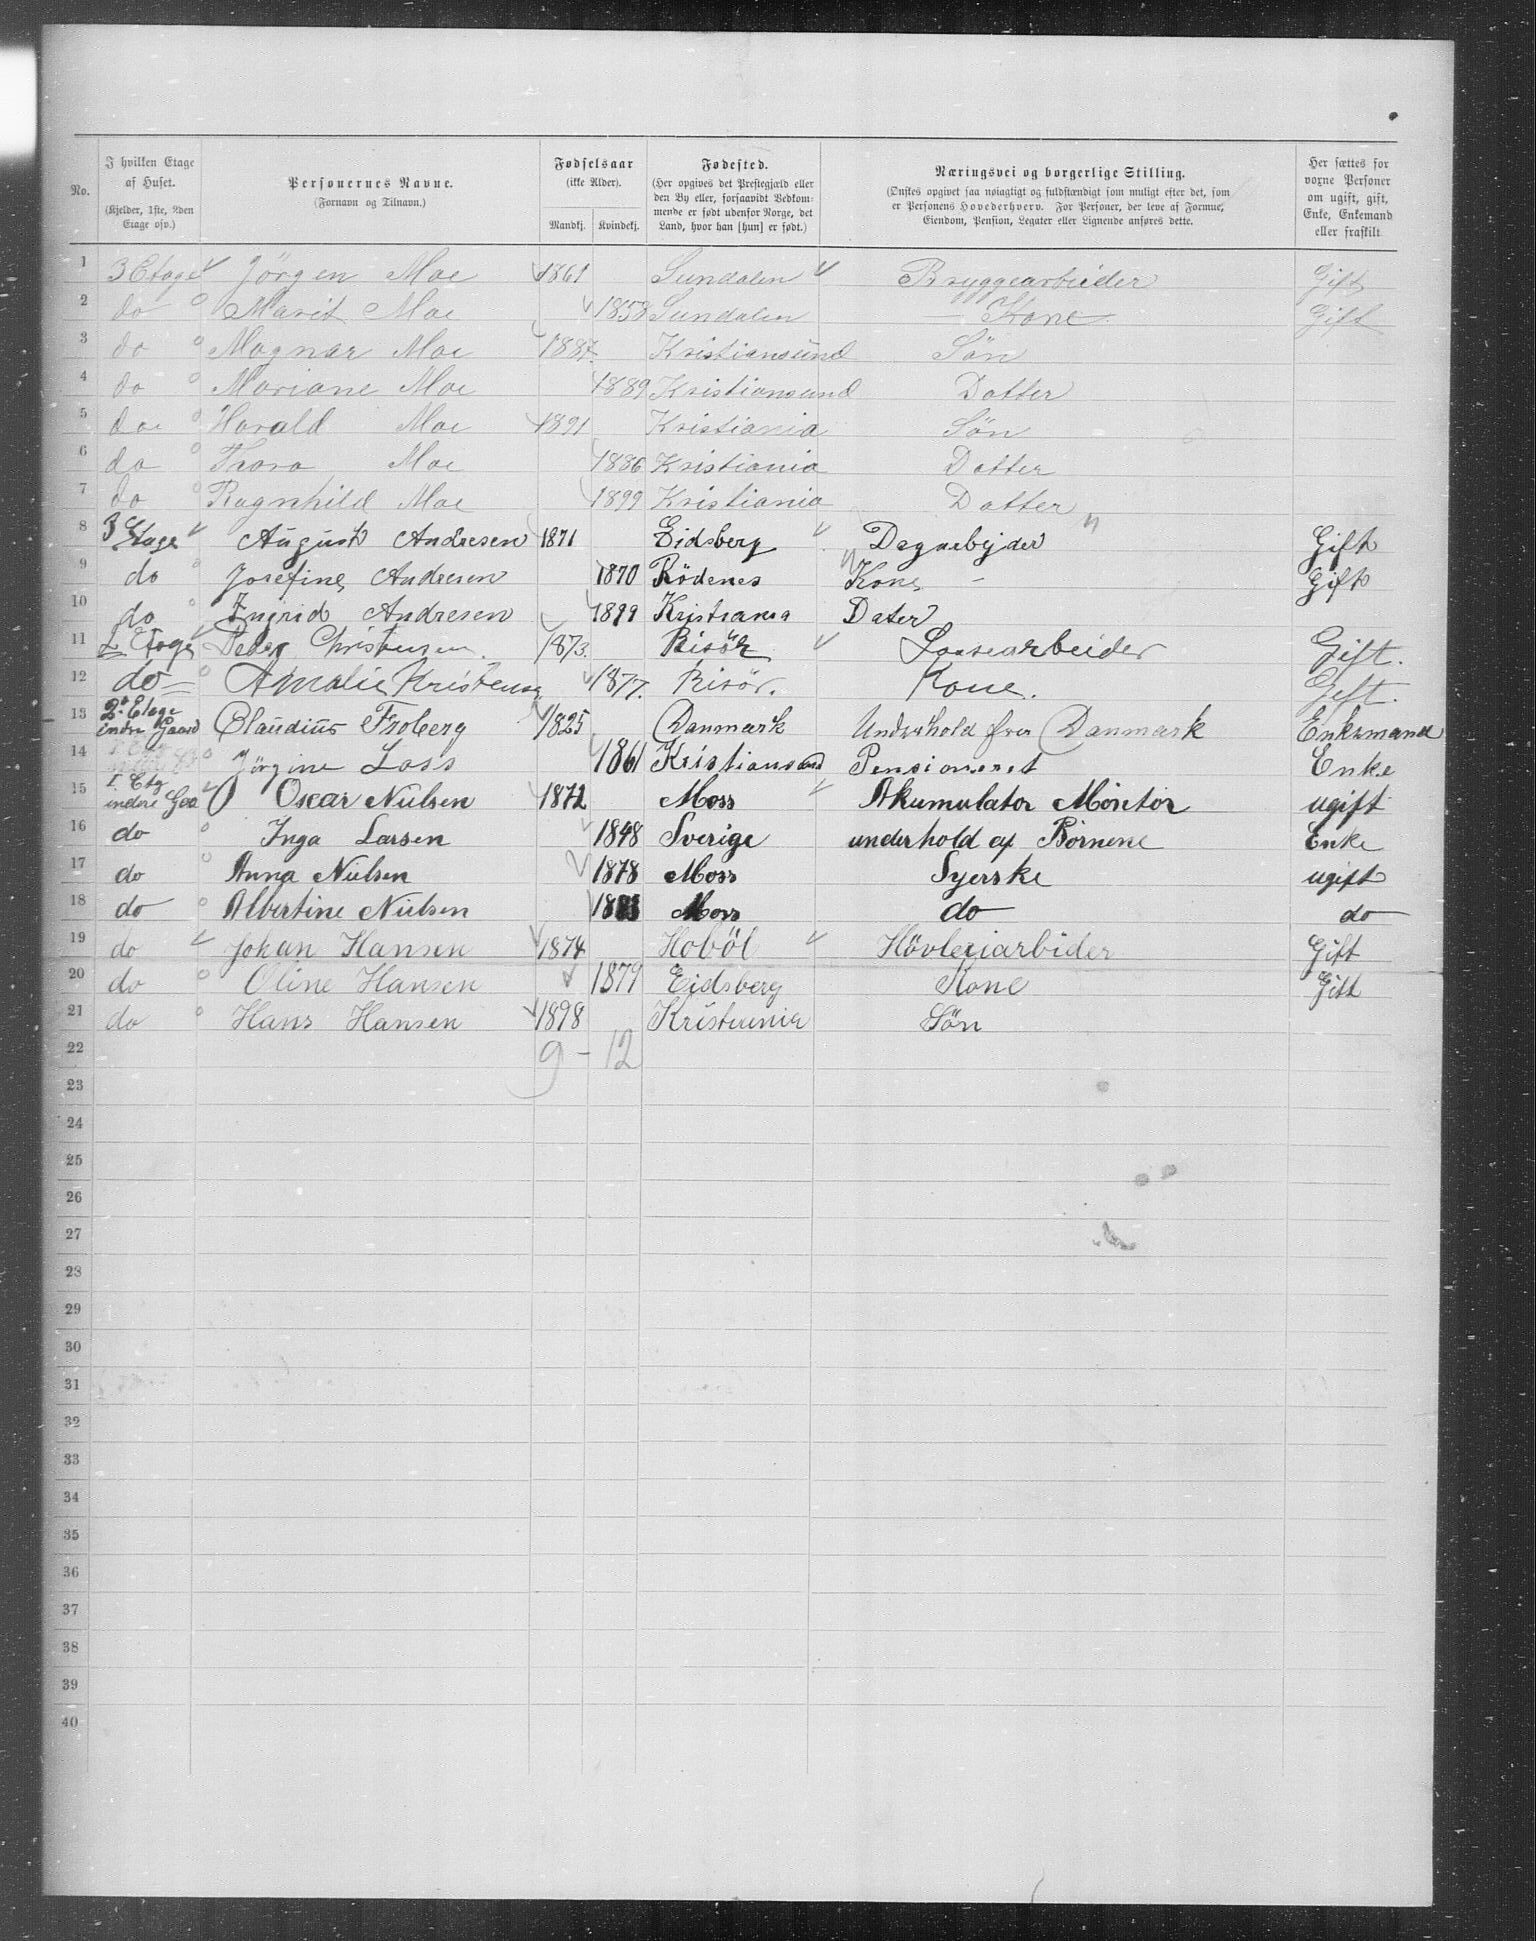 No.
I hvilken Etage af Huset. (Kjelder, 1ste, 2den Etage osv.)
Personernes Navne. (Fornavn og Tilnavn.)
Fødselsaar (ikke Alder). Mandkj. Kvindekj.
Fødested. (Her opgives det Prestegjæld eller den By eller, forsaavidt Vedkommende er født udenfor Norge, det Land, hvor han [hun] er født.)
Næringsvei og borgerlige Stilling. (Ønskes opgivet saa nøiagtigt og fuldstændigt som muligt efter det, som er Personens Hovederhverv. For Personer, der leve af Formue, Eiendom, Pension, Legater eller Lignende anføres dette.
Her sættes for voxne Personer om ugift, gift, Enke, Enkemand eller fraskilt
1 3 Etage Jörgen Moe 1861 Sundalen Bryggearbeider Gift
2 do Marit Moe 1858 Sundalen Kone Gift
3 do Magnar Moe 1887 Kristiansund Sön
4 do Mariane Moe 1889 Kristiansund Datter
5 do Harald Moe 1891 Kristiania Sön
6 do Thora Moe 1886 Kristiania Datter
7 do Ragnhild Moe 1899 Kristiania Datter
8 3 Etage August Andresen 1871 Eidsberg Dagarbejder Gift
9 do Josefine Andresen 1870 Rödenes Kone Gift
10 do Ingrid Andresen 1899 Kristiania Dater
11 2 Etage Peder Christensen 1873. Risör Gift.
12 do Amalie Kristensen 1877. Risör. Kone. Gift.
13 2. Etage indre Gaard Claudius Froberg 1825 Danmark Underhold fra Danmark Enkemand
14 Jörgine Loss 1861 Kristiansand Pensioneret Enke
15 1. Etg indere Gaa Oscar Nielsen 1872 Moss Akumulator Montör ugift
16 do Inga Larsen 1848 Sverige underhold af Börnene Enke
17 do Anna Nielsen 1878 Moss Syerske ugift
18 do Albertine Nielsen Moss do do
19 do Johan Hansen 1874 Hoböl Hövleriarbider Gift
20 do Oline Hansen 1879 Eidsberg Kone Gift
21 do Hans Hansen 1898 Kristiania Sön
22 9 - 12
23
24
25
26
27
28
29
30
31
32
33
34
35
36
37
38
39
40